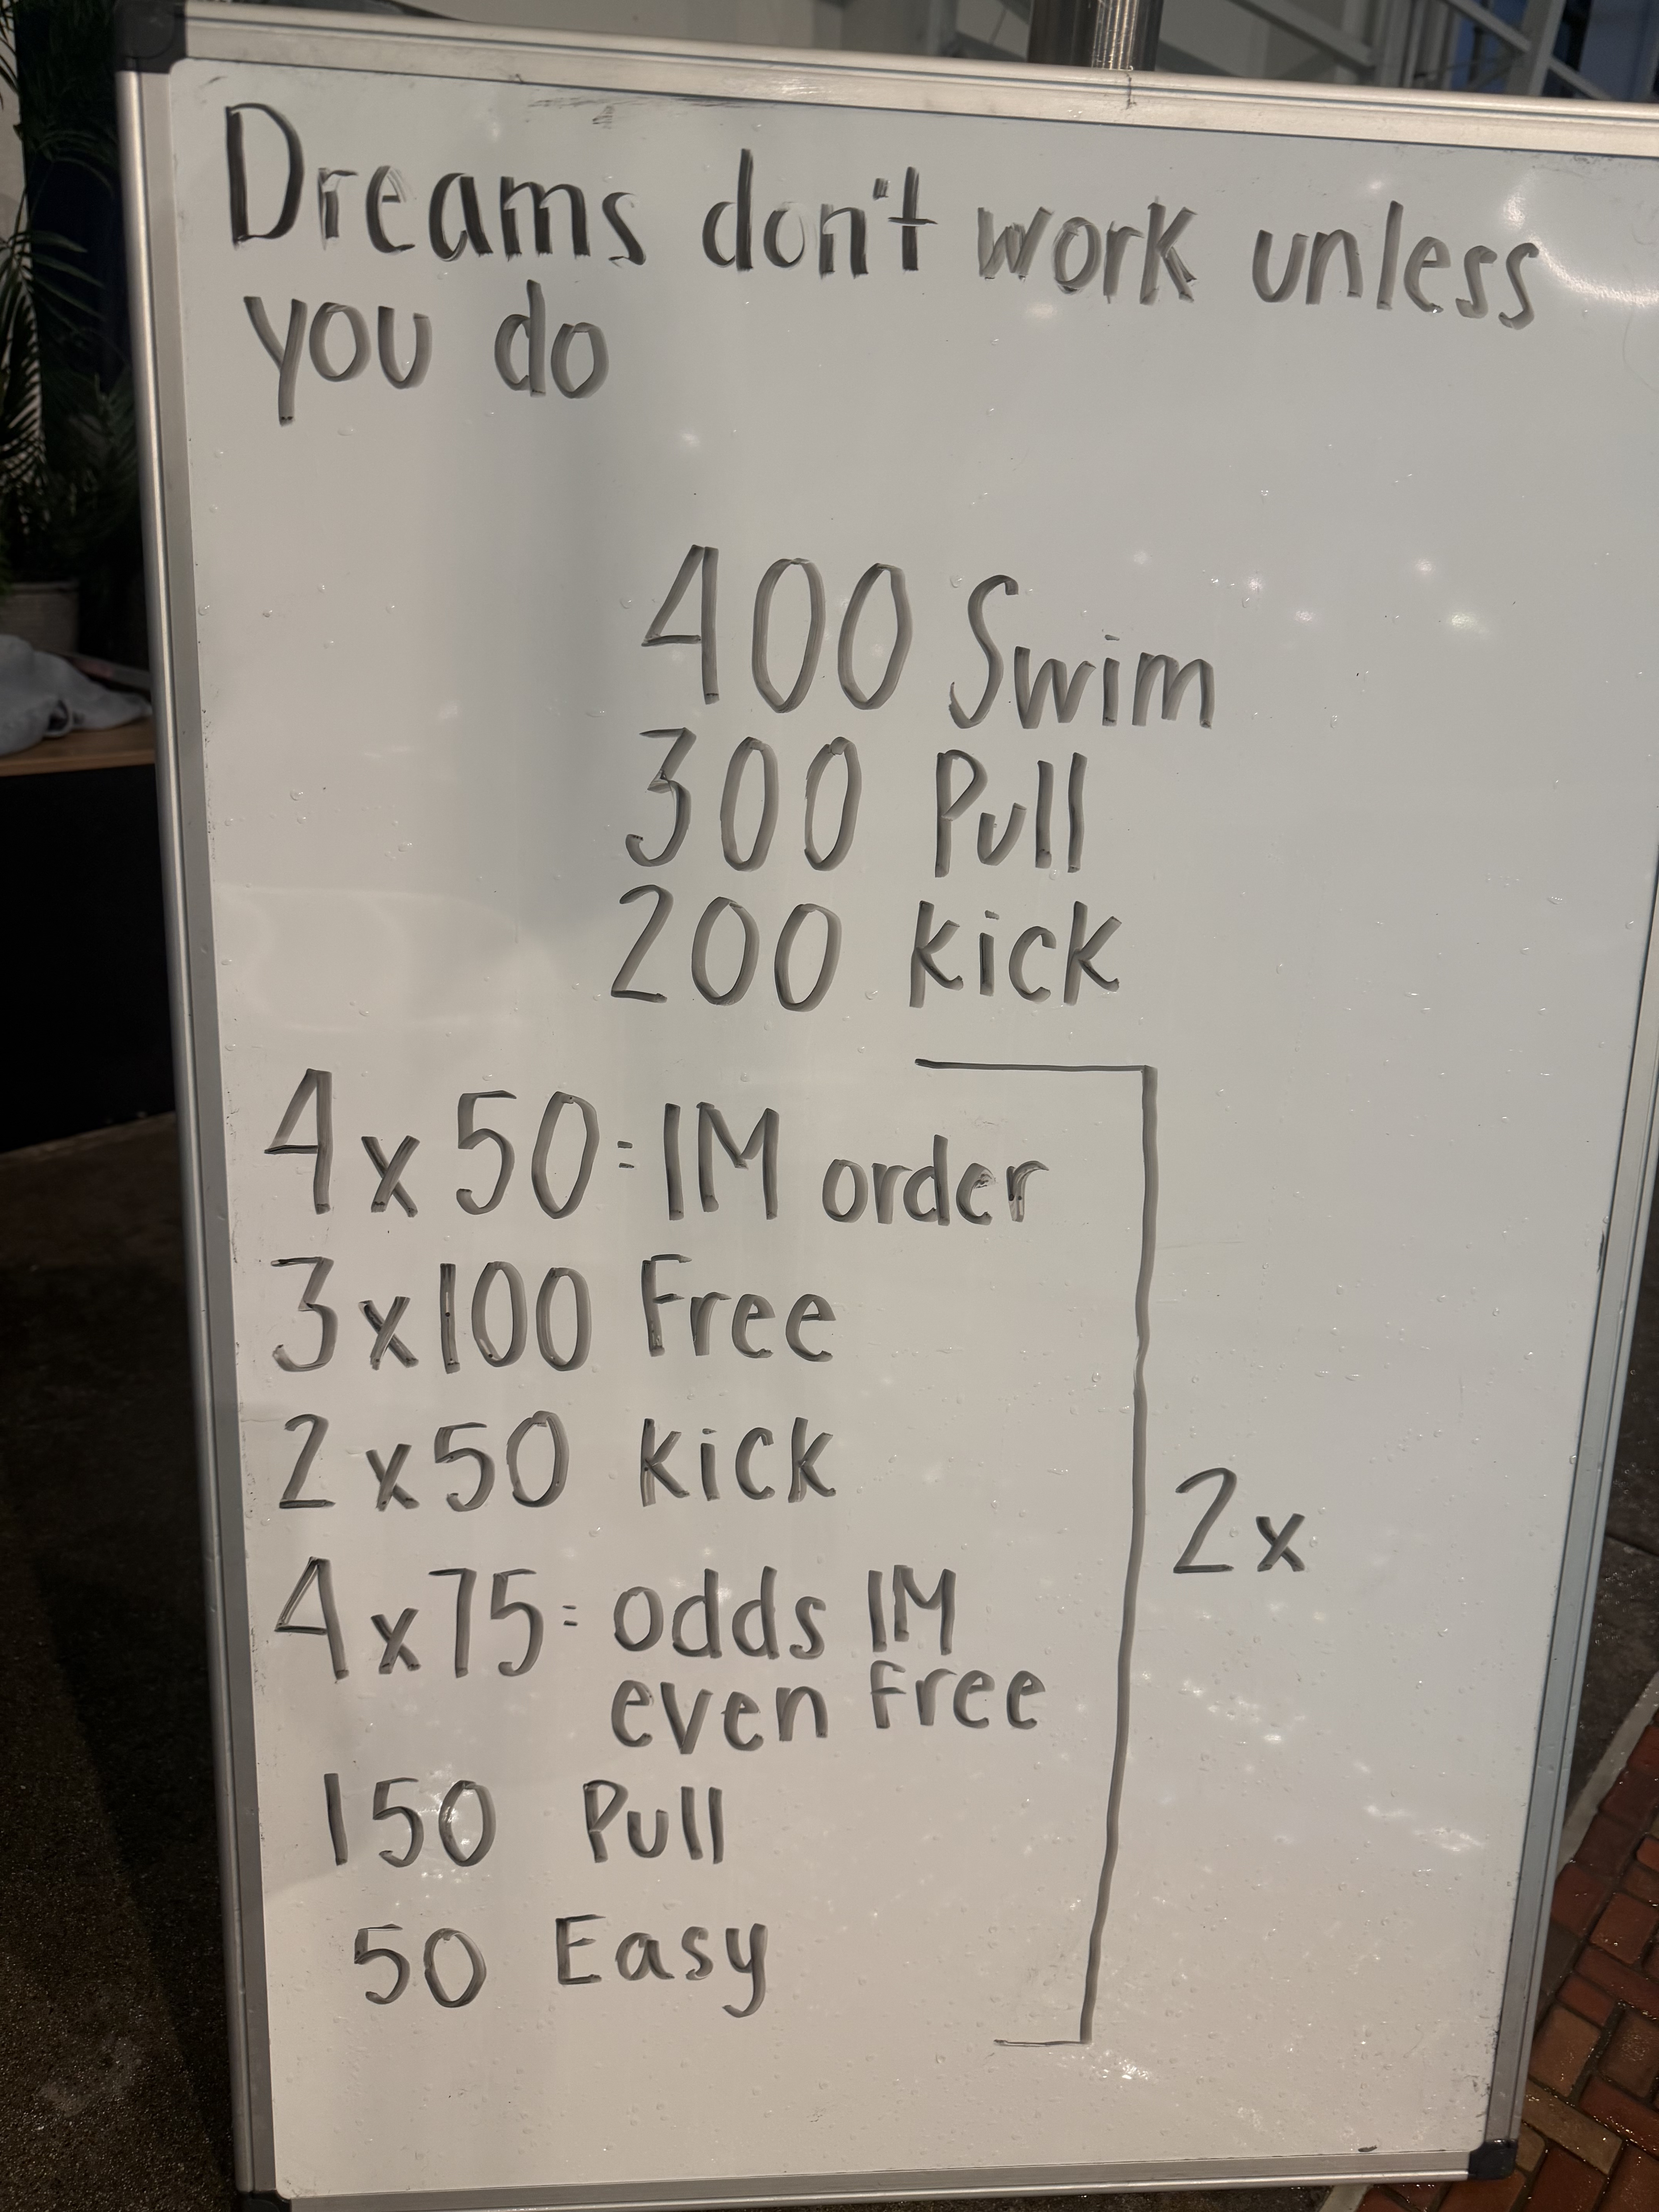 Dreams don't work unless
you do
400 Swim
300 Pull
200 Kick
4x50: IM order
3x100 Free
2x50 Kick
4x75: odds IM
even Free
2x
150 Pull
50 Easy